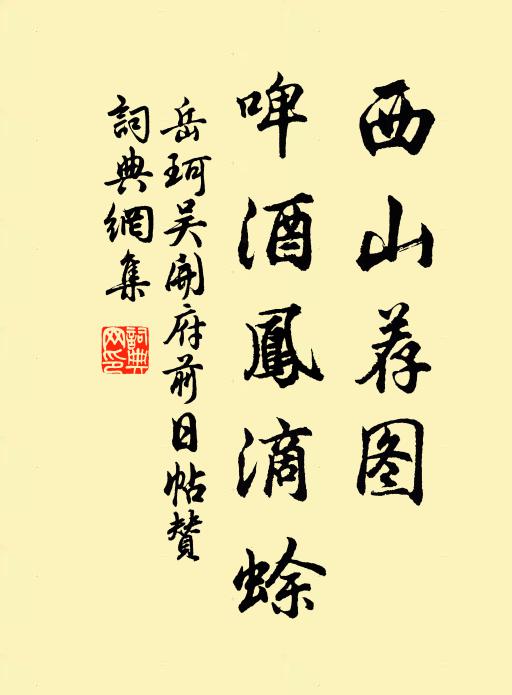 西山荐图
啤酒鳳滴蜍
岳珂吴開府前日帖贊
詞典網集
詞典網印